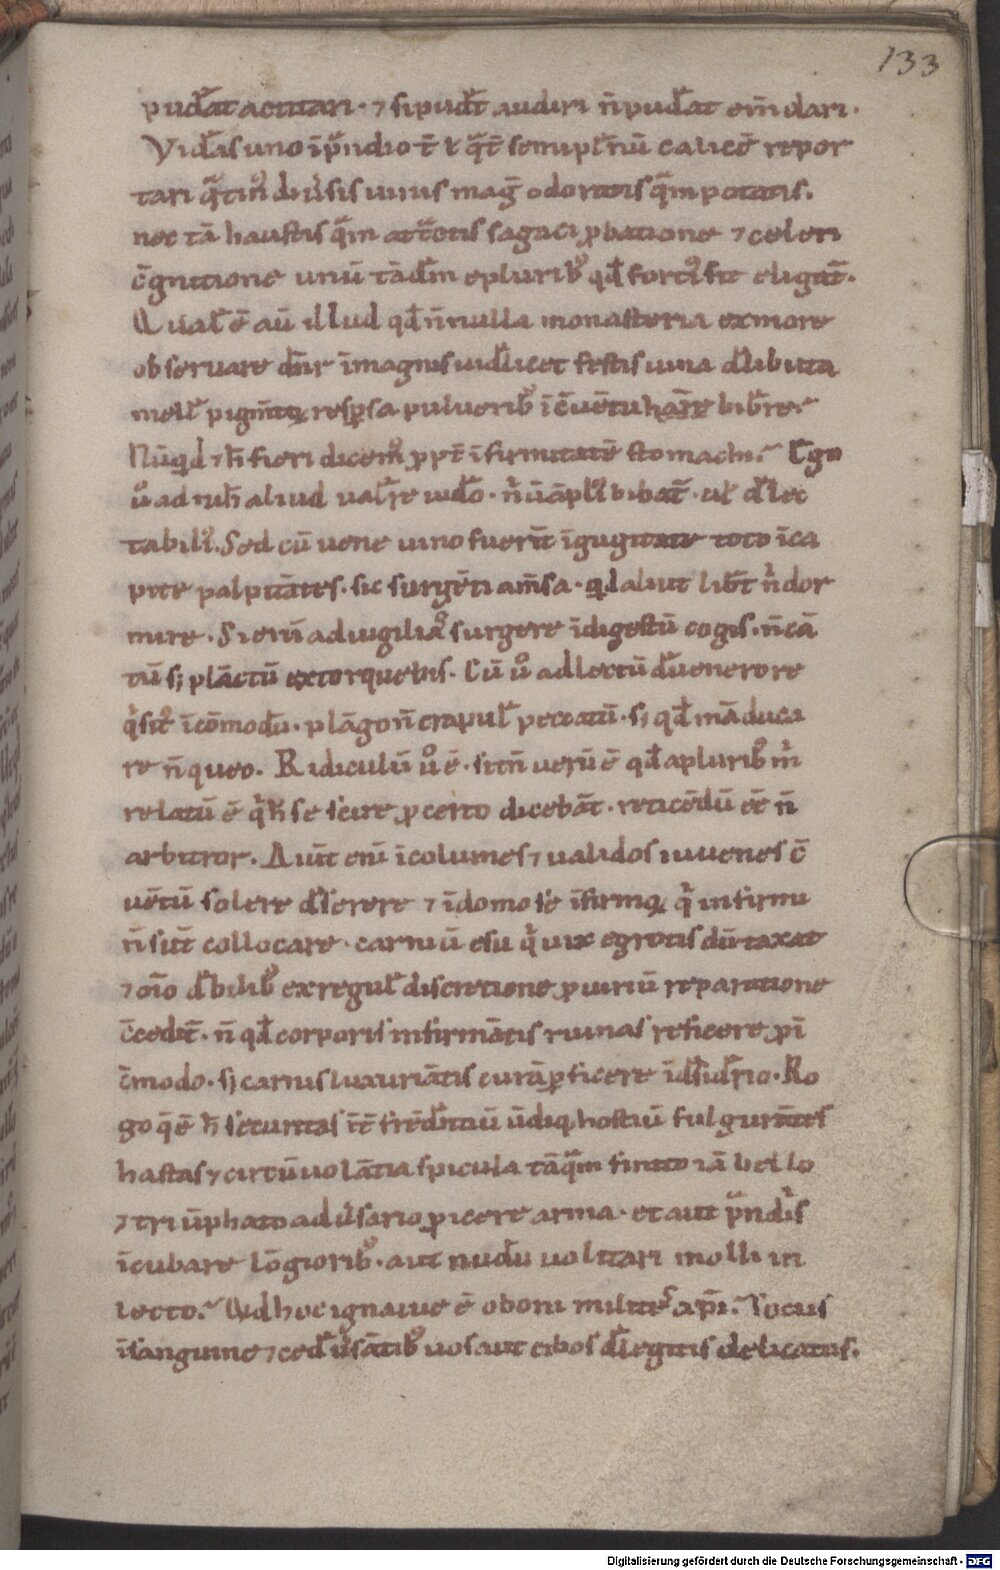 133
pud̅at actitari · ⁊ si pud̅t audiri n̅ pud̅at em̅dari ·
Vid̅as uno i̅ p̅ndio t̅ ł q̅t̅ semipl̅nu̅ calice̅ repor
tari q̅tin᷒ diu̅sis uinis mag̅ odoratis q̅m potatis.
nec ta̅ haustis q̅m att̅ctis sagaci ꝓbatione ⁊ celeri
c̅gnitione unu̅ ta̅d̅m e plurib᷒ qd̅ forti᷒ sit eligat̅.
Quale̅ e̅ au̅ illud qd̅ n̅nulla monasteria ex more
obseruare d̅nr i̅ magnis uid̅licet festis uina d̅libuta
mell̅ pigm̅toꝝ respsa puluerib᷒ i̅ c̅ue̅tu ha̅re bib̅re
Nu̅qd ⁊ h̅ fieri dicem᷒ ꝓpt̅ i̅firmitate̅ stomachi. Ego
u̅ ad nih̅ aliud ual̅re uid̅o · n̅ u̅ a̅pli᷒ bibat̅ · ul̅ d̅lec
tabili᷒. Sed cu̅ uene uino fueri̅t i̅gurgitate toto i̅ ca
pite palpita̅tes · sic surge̅ti a m̅sa · qd aliut lib̅t n̅ dor
mire · Si eni̅ ad uigilias surgere i̅digestu̅ cogis · n̅ ca̅
tu̅ sꝫ pla̅ctu̅ extorquebis. Cu̅ u̅ ad lectu̅ d̅uenero re
q̅sit᷒ i̅co̅modu̅ · pla̅go n̅ crapul̅ peccatu̅ · sꝫ qd̅ ma̅duca
re n̅ queo. Ridiculu̅ u̅ e̅ · si tn̅ ueru̅ e̅ qd̅ a plurib᷒ m̅
relatu̅ e̅ q̅ h̅ se scire ꝓ certo diceba̅t · retice̅du̅ ee̅ n̅
arbitror. Aiu̅t eni̅ i̅columes ⁊ ualidos iuuenes c̅
ue̅tu̅ solere d̅serere ⁊ i̅ domo se i̅firmoꝝ q̅ infirmi
n̅ su̅t collocare · carniu̅ esu q̅ uix egrotis du̅taxat
⁊ oi̅o d̅bilib᷒ ex regul̅ discretione ꝓ uiriu̅ reparatione
c̅cedit̅ · n̅ qd̅ corporis infirma̅tis ruinas reficere ꝓ i̅
c̅modo · sꝫ carnis luxuria̅tis cura̅ ꝑficere i̅ d̅sid̅rio · Ro
go q̅ e̅ h̅ securitas i̅t̅ fre̅d̅tiu̅ u̅diqꝫ hostiu̅ fulgura̅tes
hastas ⁊ circu̅uola̅tia spicula ta̅q̅m finito ia̅ bello
⁊ triu̅phato adu̅sario ꝓicere arma · et aut p̅ndiis
i̅cubare lo̅giorib᷒ · aut nudu̅ uolutari molli in
lecto. Qd hoc ignauie e̅ o boni milites a p̅i. Socus
i̅ sanguine ⁊ ced̅ u̅sa̅tib᷒ uos aut cibos d̅legitis delicatus.
Digitalisierung gefördert durch die Deutsche Forschungsgemeinschaft · DFG